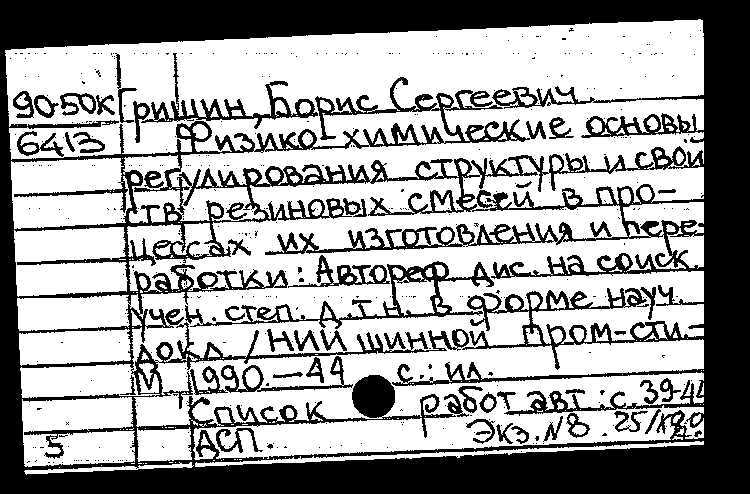 90-50К Гришин, Борис Сергеевич.
6413 Физико-химические основы
регулирования структуры и свой
ств резиновых смесей в про-
цессах их изготовления и пере-
работки: Автореф дис. на соиск.
учен. степ. д.т.н. в форме науч.
докл. / НИИ шинной пром-сти.-
М. 1990.-44 с.: ил.
Список работ авт: с. 39-44
5 ДСП. Экз. N 8. 25/